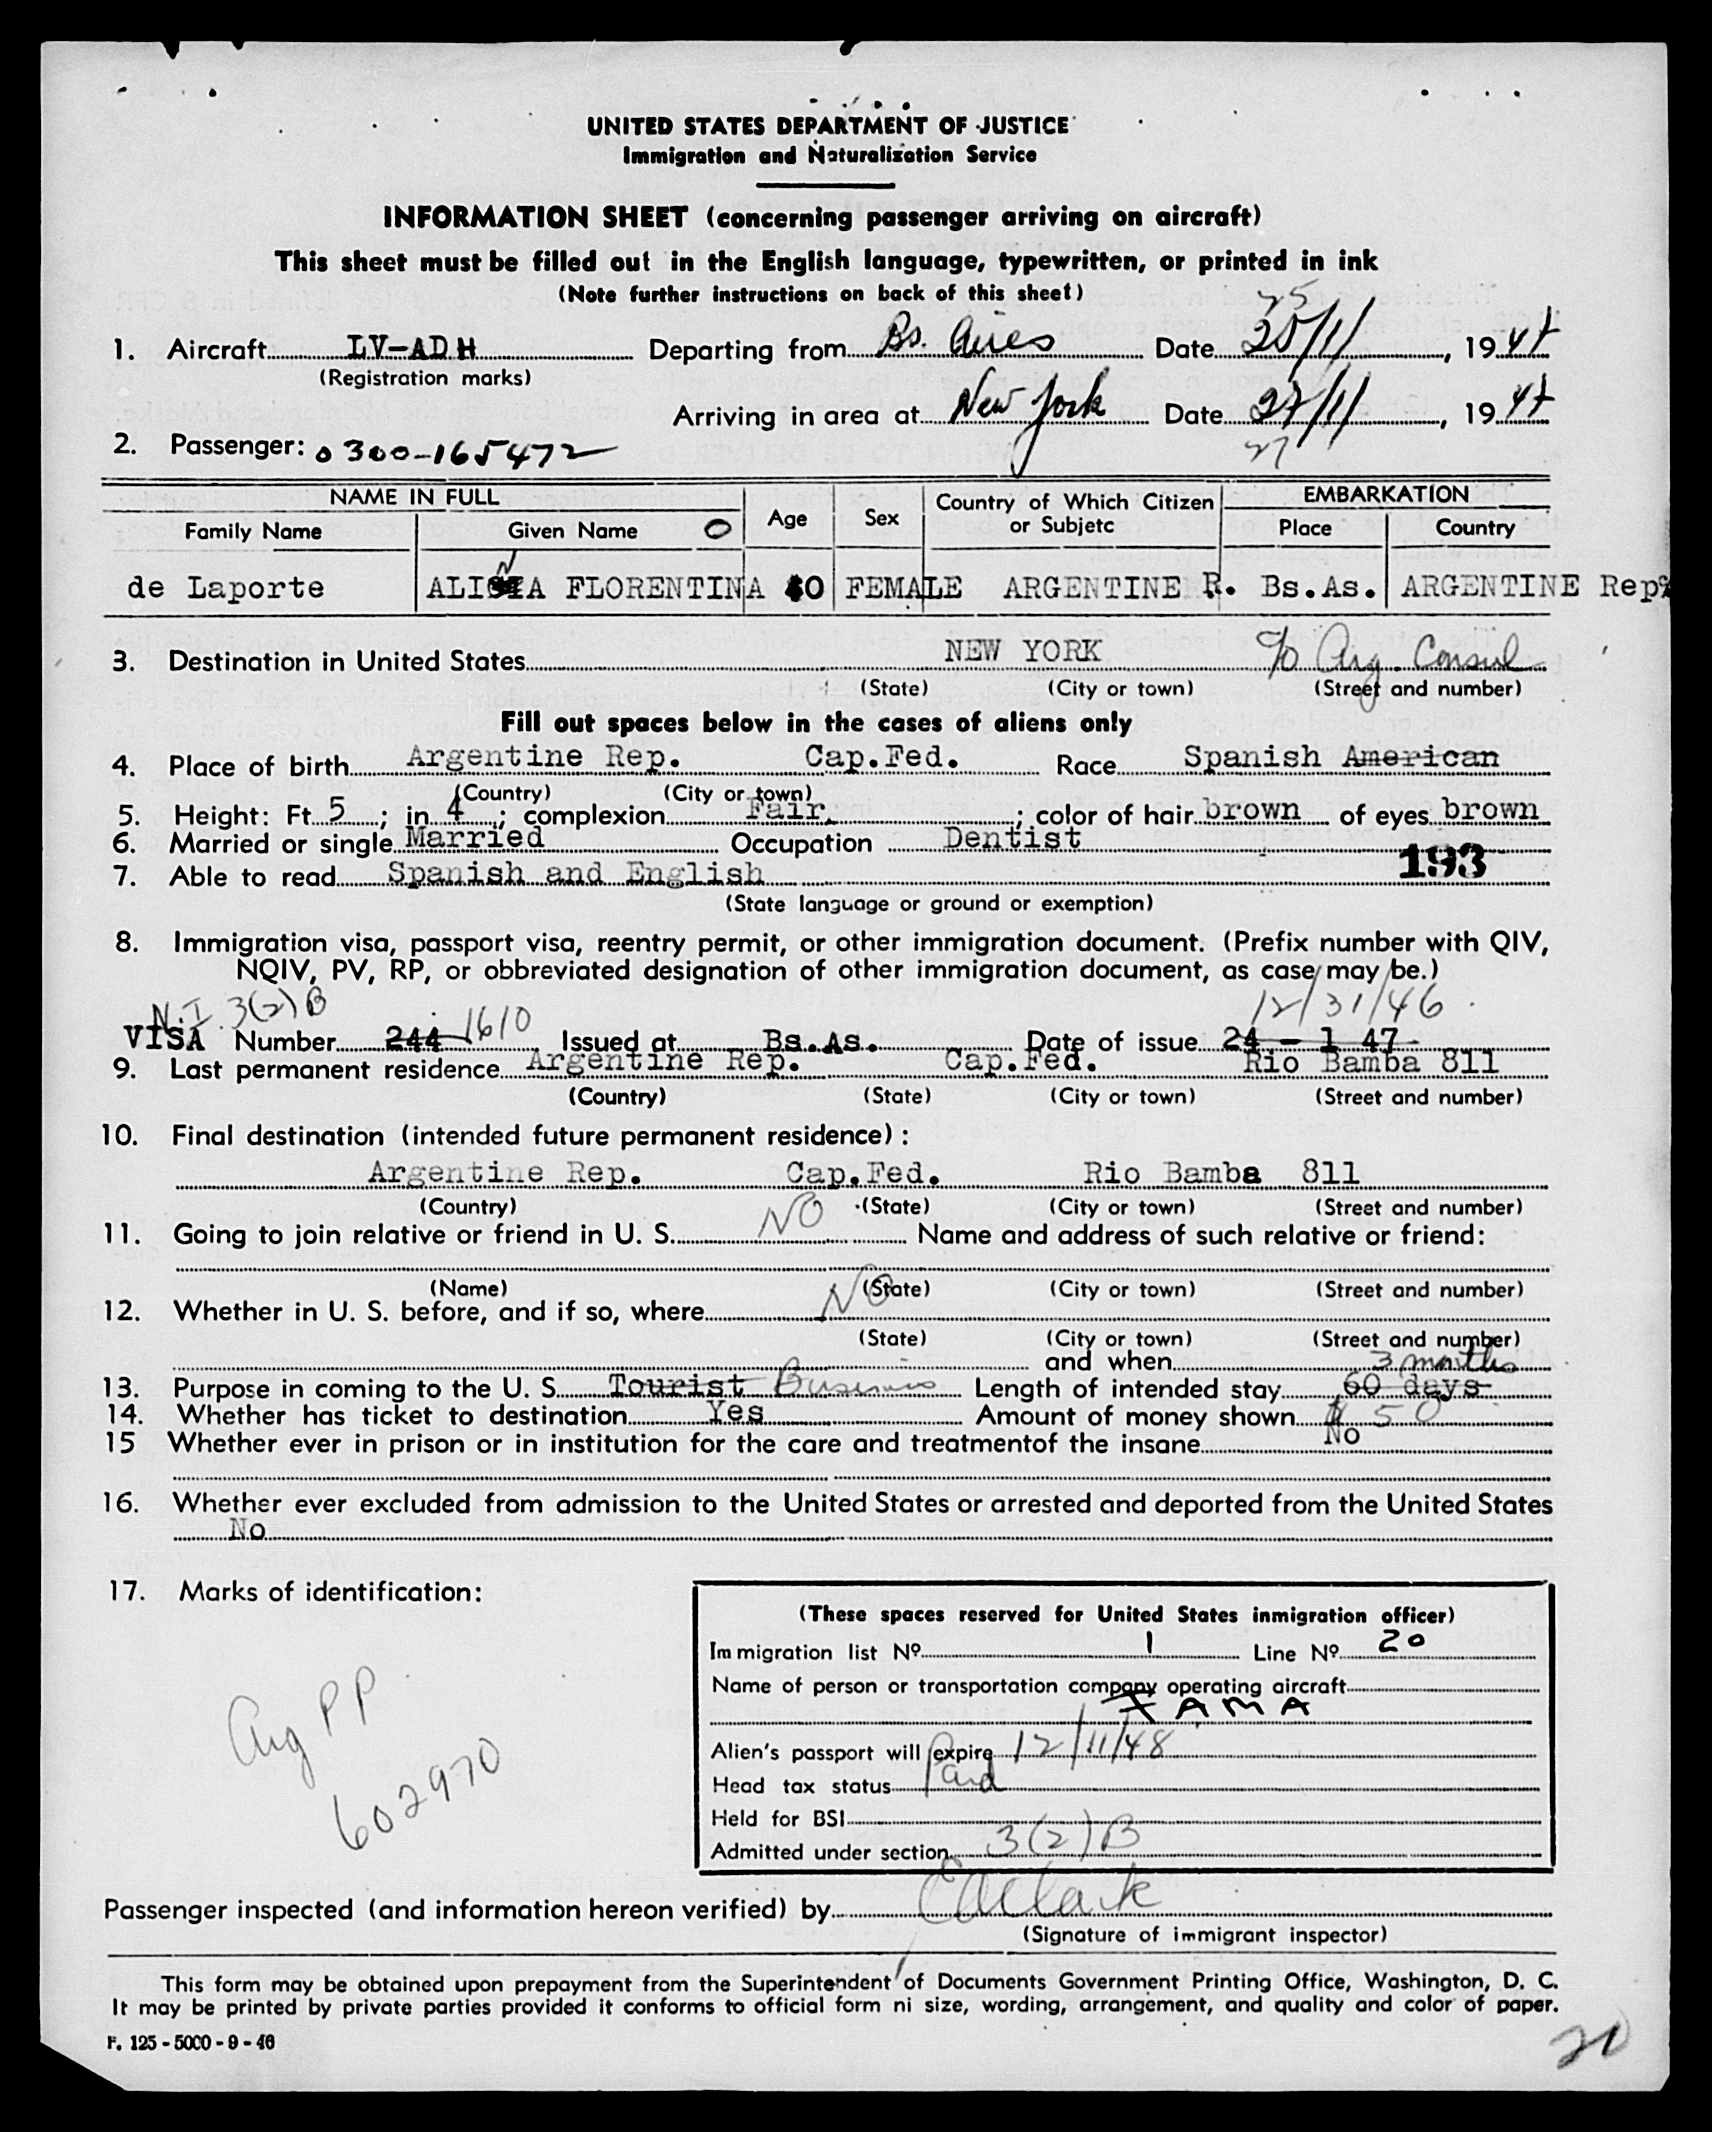 UNITED STATES DEPARTMENT OF JUSTICE
Immigration and Naturalization Service
INFORMATION SHEET (concerning passenger arriving on aircraft)
This sheet must be filled out in the English language, typewritten, or printed in ink
(Note further instructions on back of this sheet)
25
1. Aircraft LV-ADH Departing from Bs. Aires Date 25/1/, 1947
(Registration marks)
Arriving in area at New York Date 27/1/, 1947
27
2. Passenger: 0300-165472
NAME IN FULL Age Sex Country of Which Citizen or Subjetc EMBARKATION
Family Name Given Name O Place Country
de Laporte ALICIA FLORENTINA 40 FEMALE ARGENTINE R. Bs.As. ARGENTINE Rep.
3. Destination in United States NEW YORK c/o Arg. Consul
(State) (City or town) (Street and number)
Fill out spaces below in the cases of aliens only
4. Place of birth Argentine Rep. Cap.Fed. Race Spanish American
(Country) (City or town)
5. Height: Ft. 5; in. 4; complexion Fair; color of hair brown of eyes brown
6. Married or single Married Occupation Dentist
193
7. Able to read Spanish and English
(State language or ground or exemption)
8. Immigration visa, passport visa, reentry permit, or other immigration document. (Prefix number with QIV,
NQIV, PV, RP, or obbreviated designation of other immigration document, as case may be.)
N.I. 3(2)B 12/31/46
VISA Number 244 1610 Issued at Bs.As. Date of issue 24 - 1 47
9. Last permanent residence Argentine Rep. Cap.Fed. Rio Bamba 811
(Country) (State) (City or town) (Street and number)
10. Final destination (intended future permanent residence):
Argentine Rep. Cap.Fed. Rio Bamba 811
(Country) (State) (City or town) (Street and number)
11. Going to join relative or friend in U. S. NO Name and address of such relative or friend:
(Name) (State) (City or town) (Street and number)
12. Whether in U. S. before, and if so, where NO
(State) (City or town) (Street and number)
and when
3 months
13. Purpose in coming to the U. S. Tourist Business Length of intended stay 60 days
14. Whether has ticket to destination Yes Amount of money shown $ 50
15 Whether ever in prison or in institution for the care and treatmentof the insane No
16. Whether ever excluded from admission to the United States or arrested and deported from the United States
No
17. Marks of identification:
Arg PP
602970
(These spaces reserved for United States inmigration officer)
Immigration list Nº 1 Line Nº 20
Name of person or transportation company operating aircraft
FAMA
Alien's passport will expire 12/11/48
Head tax status Paid
Held for BSI
Admitted under section 3(2)B
Passenger inspected (and information hereon verified) by Clark
(Signature of immigrant inspector)
This form may be obtained upon prepayment from the Superintendent of Documents Government Printing Office, Washington, D. C.
It may be printed by private parties provided it conforms to official form ni size, wording, arrangement, and quality and color of paper.
F. 125 - 5000 - 9 - 46
20